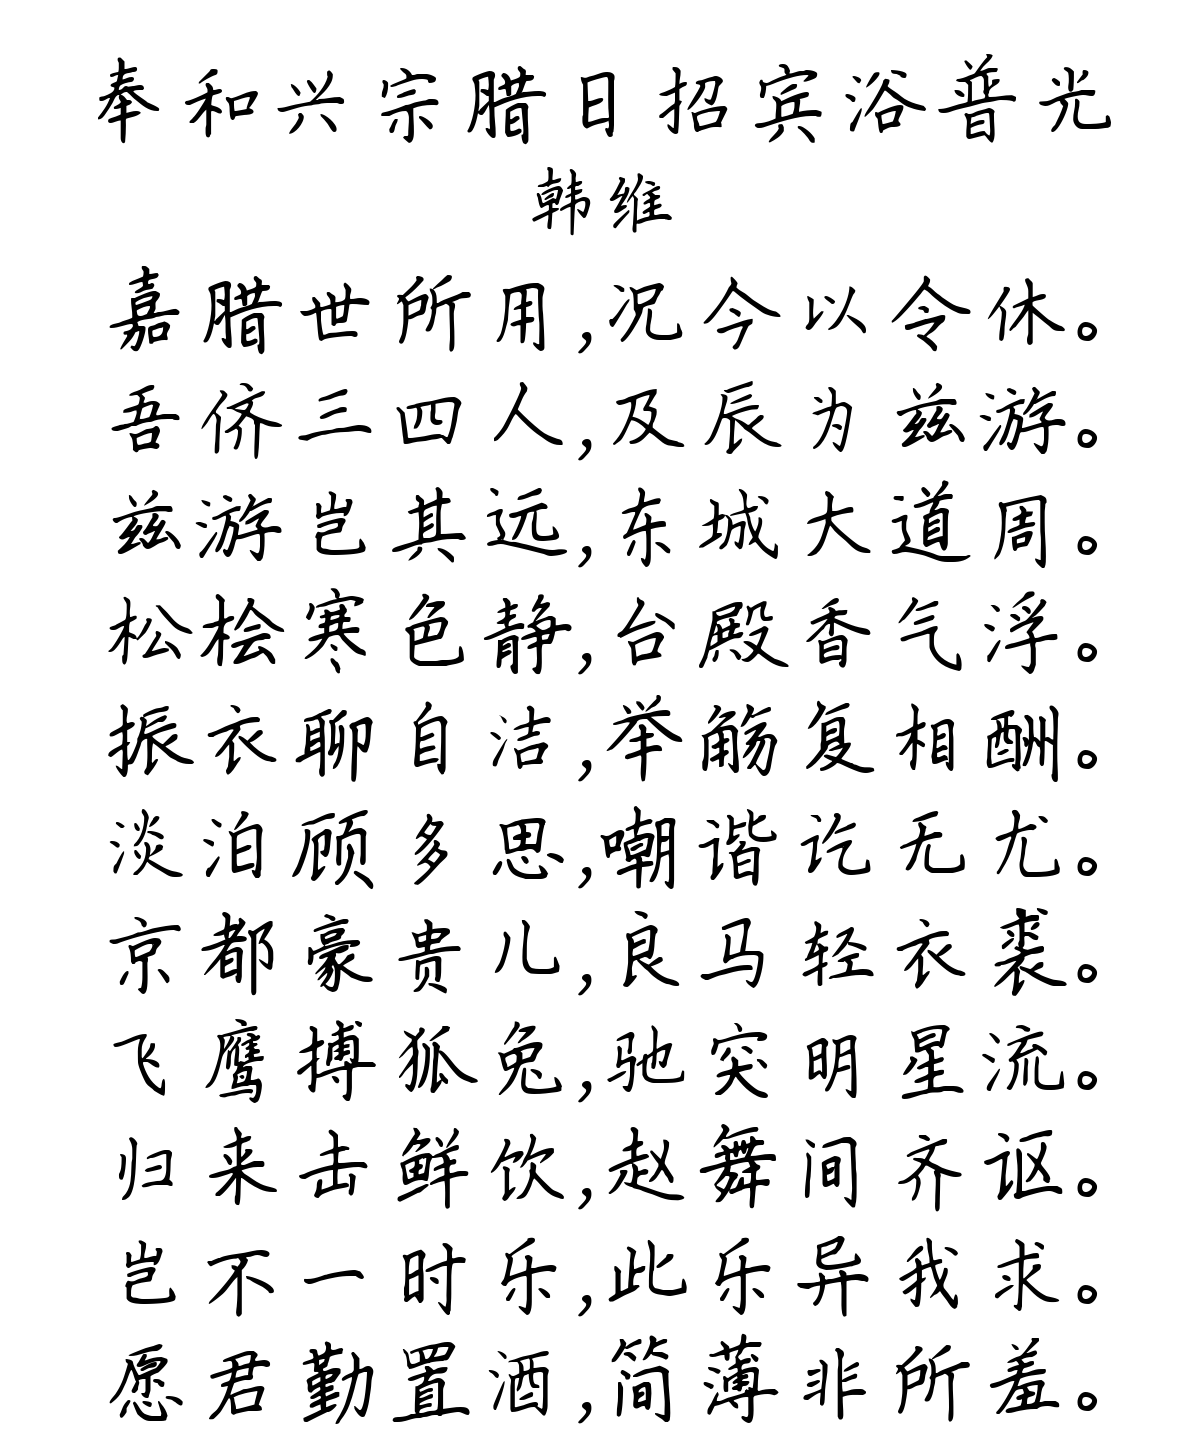 奉和兴宗腊日招宾浴普光
韩维
嘉腊世所用,况今以令休。
吾侪三四人,及辰为兹游。
兹游岂其远,东城大道周。
松桧寒色静,台殿香气浮。
振衣聊自洁,举觞复相酬。
淡泊顾多思,嘲谐讫无尤。
京都豪贵儿,良马轻衣裘。
飞鹰搏狐兔,驰突明星流。
归来击鲜饮,赵舞间齐讴。
岂不一时乐,此乐异我求。
愿君勤置酒,简薄非所羞。